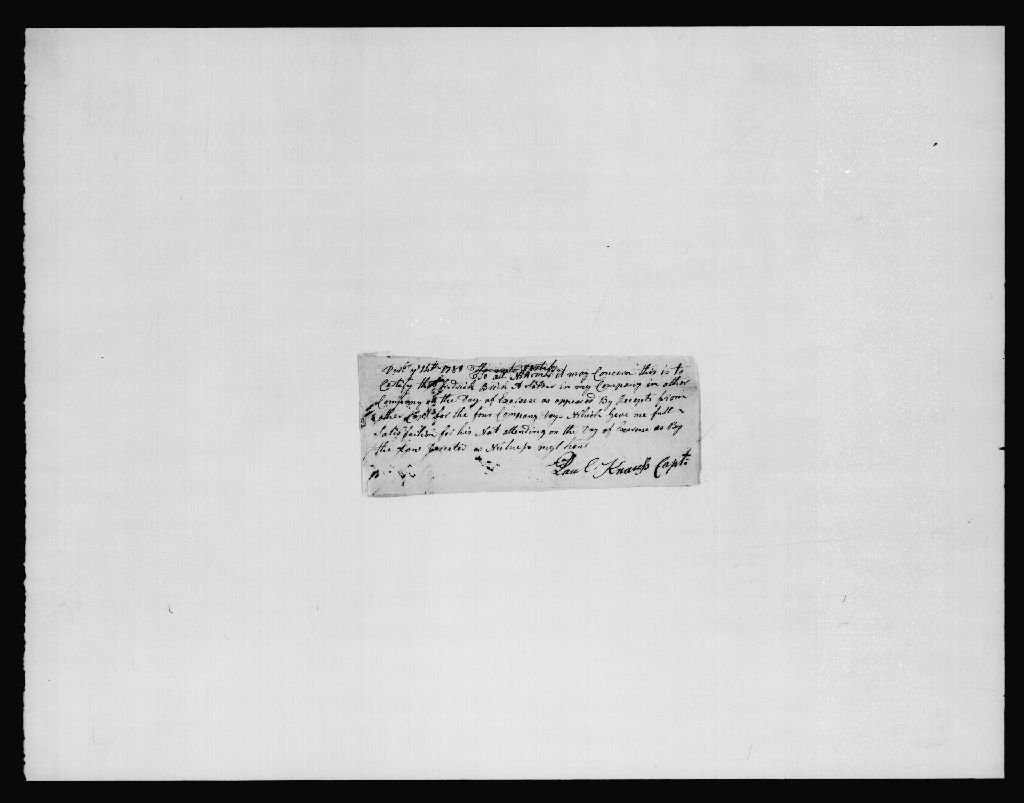 Decbr ye 14th 1781
To all Whome it may Concern this is to
Certify that fredrick Brick A Solder in my Company in other
Company on the Day of Exersese as appeared By Recepts from
other Capt for the four Company Days Which Geve me full
Satisfaction for his Not attending on the Day of Exersese as By
the Law Derected as Witness my hand
Paul Knauss Capt